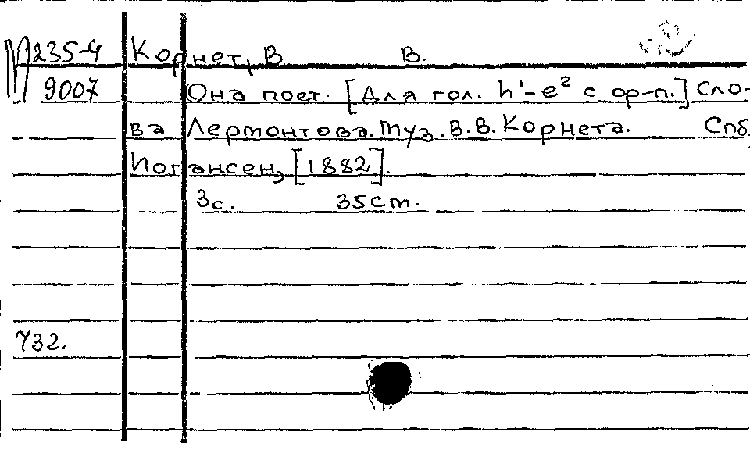 М 235-4 Корнет, В. В.
9007 Она поет. [Для гол. h¹-e² с ф-п.] Сло-
ва Лермонтова. Муз. В.В. Корнета. Спб,
Иогансен, [1882].
3с. 35см.
732.